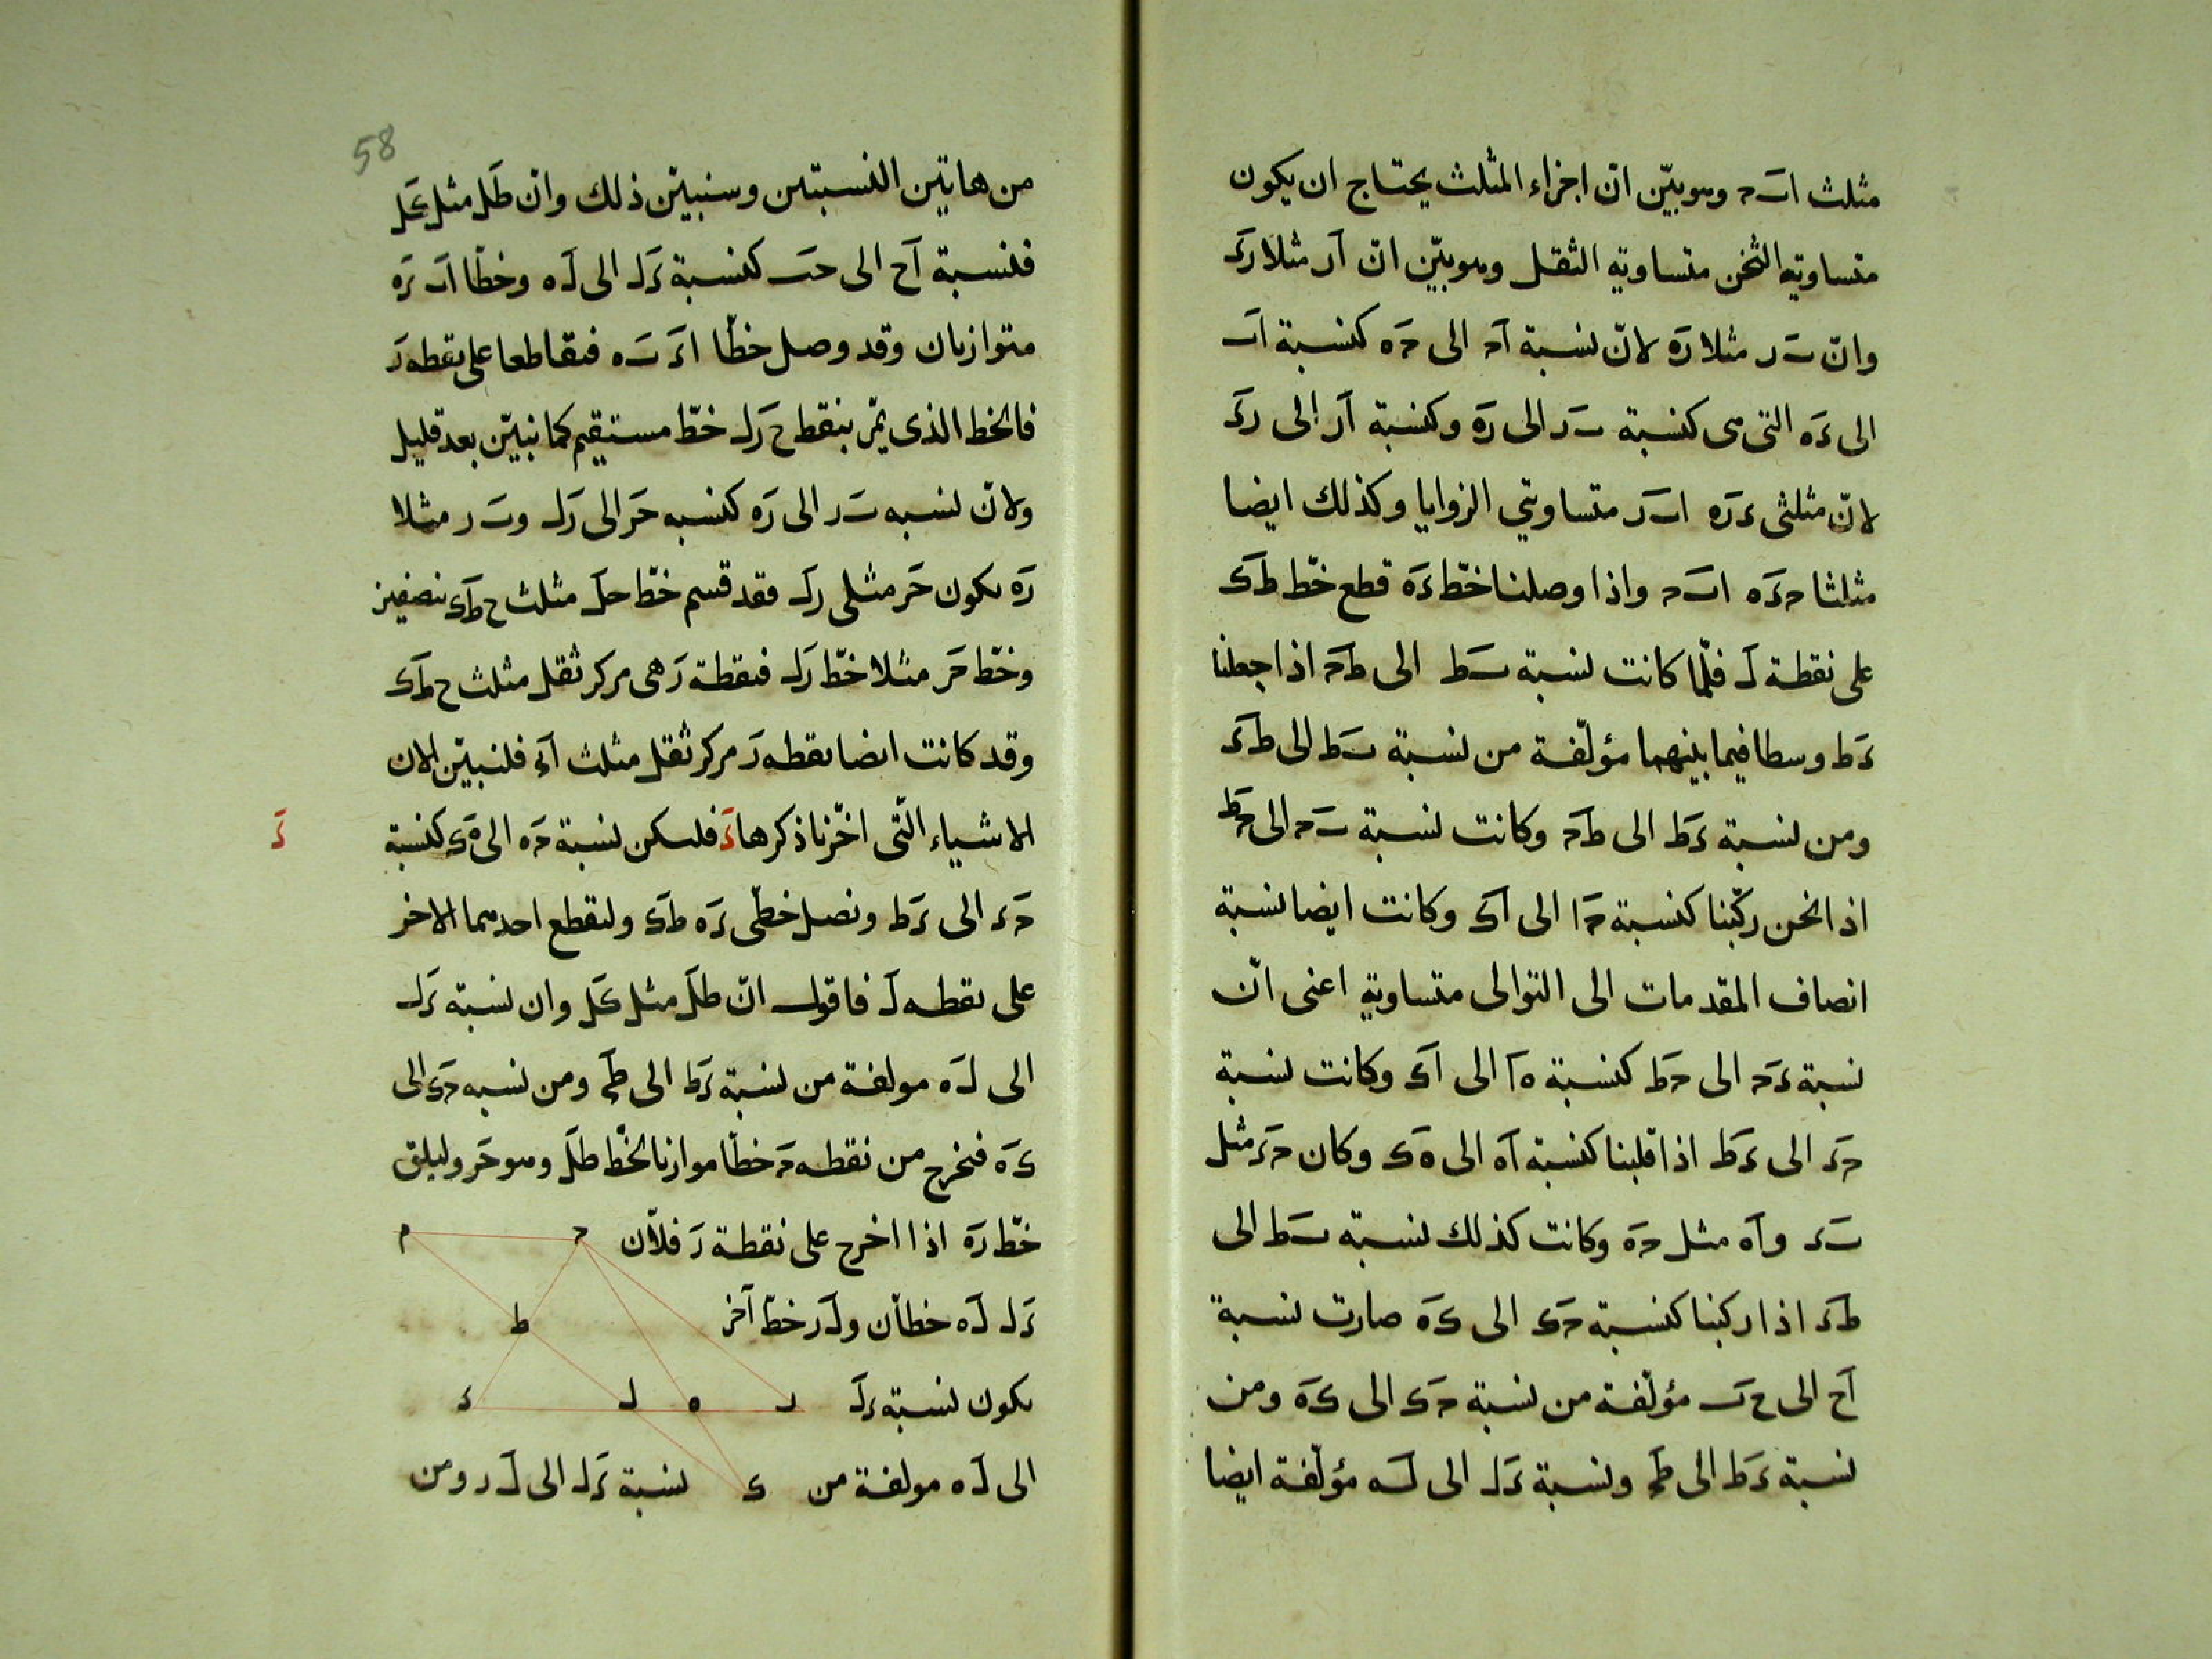 مثلث ا‌ب‌ج وهو بيّن انّ اجزاء المثلث يحتاج ان يكون
متساويه الثخن متساويه الثقل وهو بيّن انّ ا‌ر مثلا ر‌ء
وانّ ب‌ر مثلا ر‌ه لانّ نسبة ا‌ج الى ج‌ه كنسبة ا‌ب
الى ء‌ه التى هى كنسبة ب‌ر الى ر‌ه وكنسبة ا‌ر الى ر‌ء
لانّ مثلثى ء‌ر‌ه ا‌ب‌ر متساويتي الزوايا وكذلك ايضا
مثلثا ج‌ء‌ه ا‌ب‌ج واذا وصلنا خطّ ء‌ه قطع خطّ ط‌ك
على نقطة ل فلمّا كانت نسبة ب‌ط الى ط‌ج اذا جعلنا
ء‌ط وسطا فيما بينهما مؤلّفة من نسبة ب‌ط الى ط‌ء
ومن نسبة ء‌ط الى ط‌ج وكانت نسبة ب‌ج الى ج‌ط
اذا نحن ركّبنا كنسبة ج‌ا الى ا‌ك وكانت ايضا نسبة
انصاف المقدمات الى التوالى متساوية اعنى انّ
نسبة ء‌ج الى ج‌ط كنسبة ه‌ا الى ا‌ك وكانت نسبة
ج‌ء الى ء‌ط اذا قلبنا كنسبة ا‌ه الى ه‌ك وكان ج‌ء مثل
ب‌ء وا‌ه مثل ج‌ه وكانت كذلك نسبة ب‌ط الى
ط‌ء اذا ركبنا كنسبة ج‌ك الى ك‌ه صارت نسبة
ا‌ح الى ح‌ب مؤلّفة من نسبة ج‌ك الى ك‌ه ومن
نسبة ء‌ط الى ط‌ج ونسبة ء‌ل الى ل‌ه مؤلّفة ايضا
58
من هاتين النسبتين وسنبيّن ذلك وانّ ط‌ل مثل ك‌ل
فنسبة ا‌ح الى ح‌ب كنسبة ء‌ل الى ل‌ه وخطّا ا‌ب ء‌ه
متوازيان وقد وصل خطّا ا‌ء ب‌ه فتقاطعا على نقطه ر
فالخط الذى يمّر بنقط ح‌ر‌ل خطّ مستقيم كما نبيّن بعد قليل
ولانّ نسبه ب‌ر الى ر‌ه كنسبه ح‌ر الى ر‌ل وب‌ر مثلا
ر‌ه يكون ح‌ر مثلى ر‌ل فقد قسم خطّ ح‌ل مثلث ح‌ط‌ك بنصفين
وخطّ ح‌ر مثلا خطّ ر‌ل فنقطة ر هى مركز ثقل مثلث ح‌ط‌ك
وقد كانت ايضا نقطه ر مركز ثقل مثلث فلنبيّن الان
الاشياء الّتى اخّرنا ذكرها ء فليكن نسبة ج‌ه الى ه‌ك كنسبة
ء
ج‌ء الى ء‌ط ونصل خطّى ء‌ه ط‌ك وليقطع احدهما الاخر
على نقطه ل فاقول انّ ط‌ل مثل ك‌ل وان نسبة ء‌ل
الى ل‌ه مولفة من نسبة ء‌ط الى ط‌ج ومن نسبه ج‌ك الى
ك‌ه فنخرج من نقطه ج خطّا موازيا لخطّ ط‌ل وهو ج‌ر وليلق
خطّ ر‌ه اذا اخرج على نقطة ر فلانّ
ء‌ل ل‌ه خطانّ ول‌ر خطّ آخر
يكون نسبة ء‌ل
الى ل‌ه مولفة من نسبة ء‌ل الى ل‌ر ومن
م
ج
ط
ء
ل
ه
ر
ك